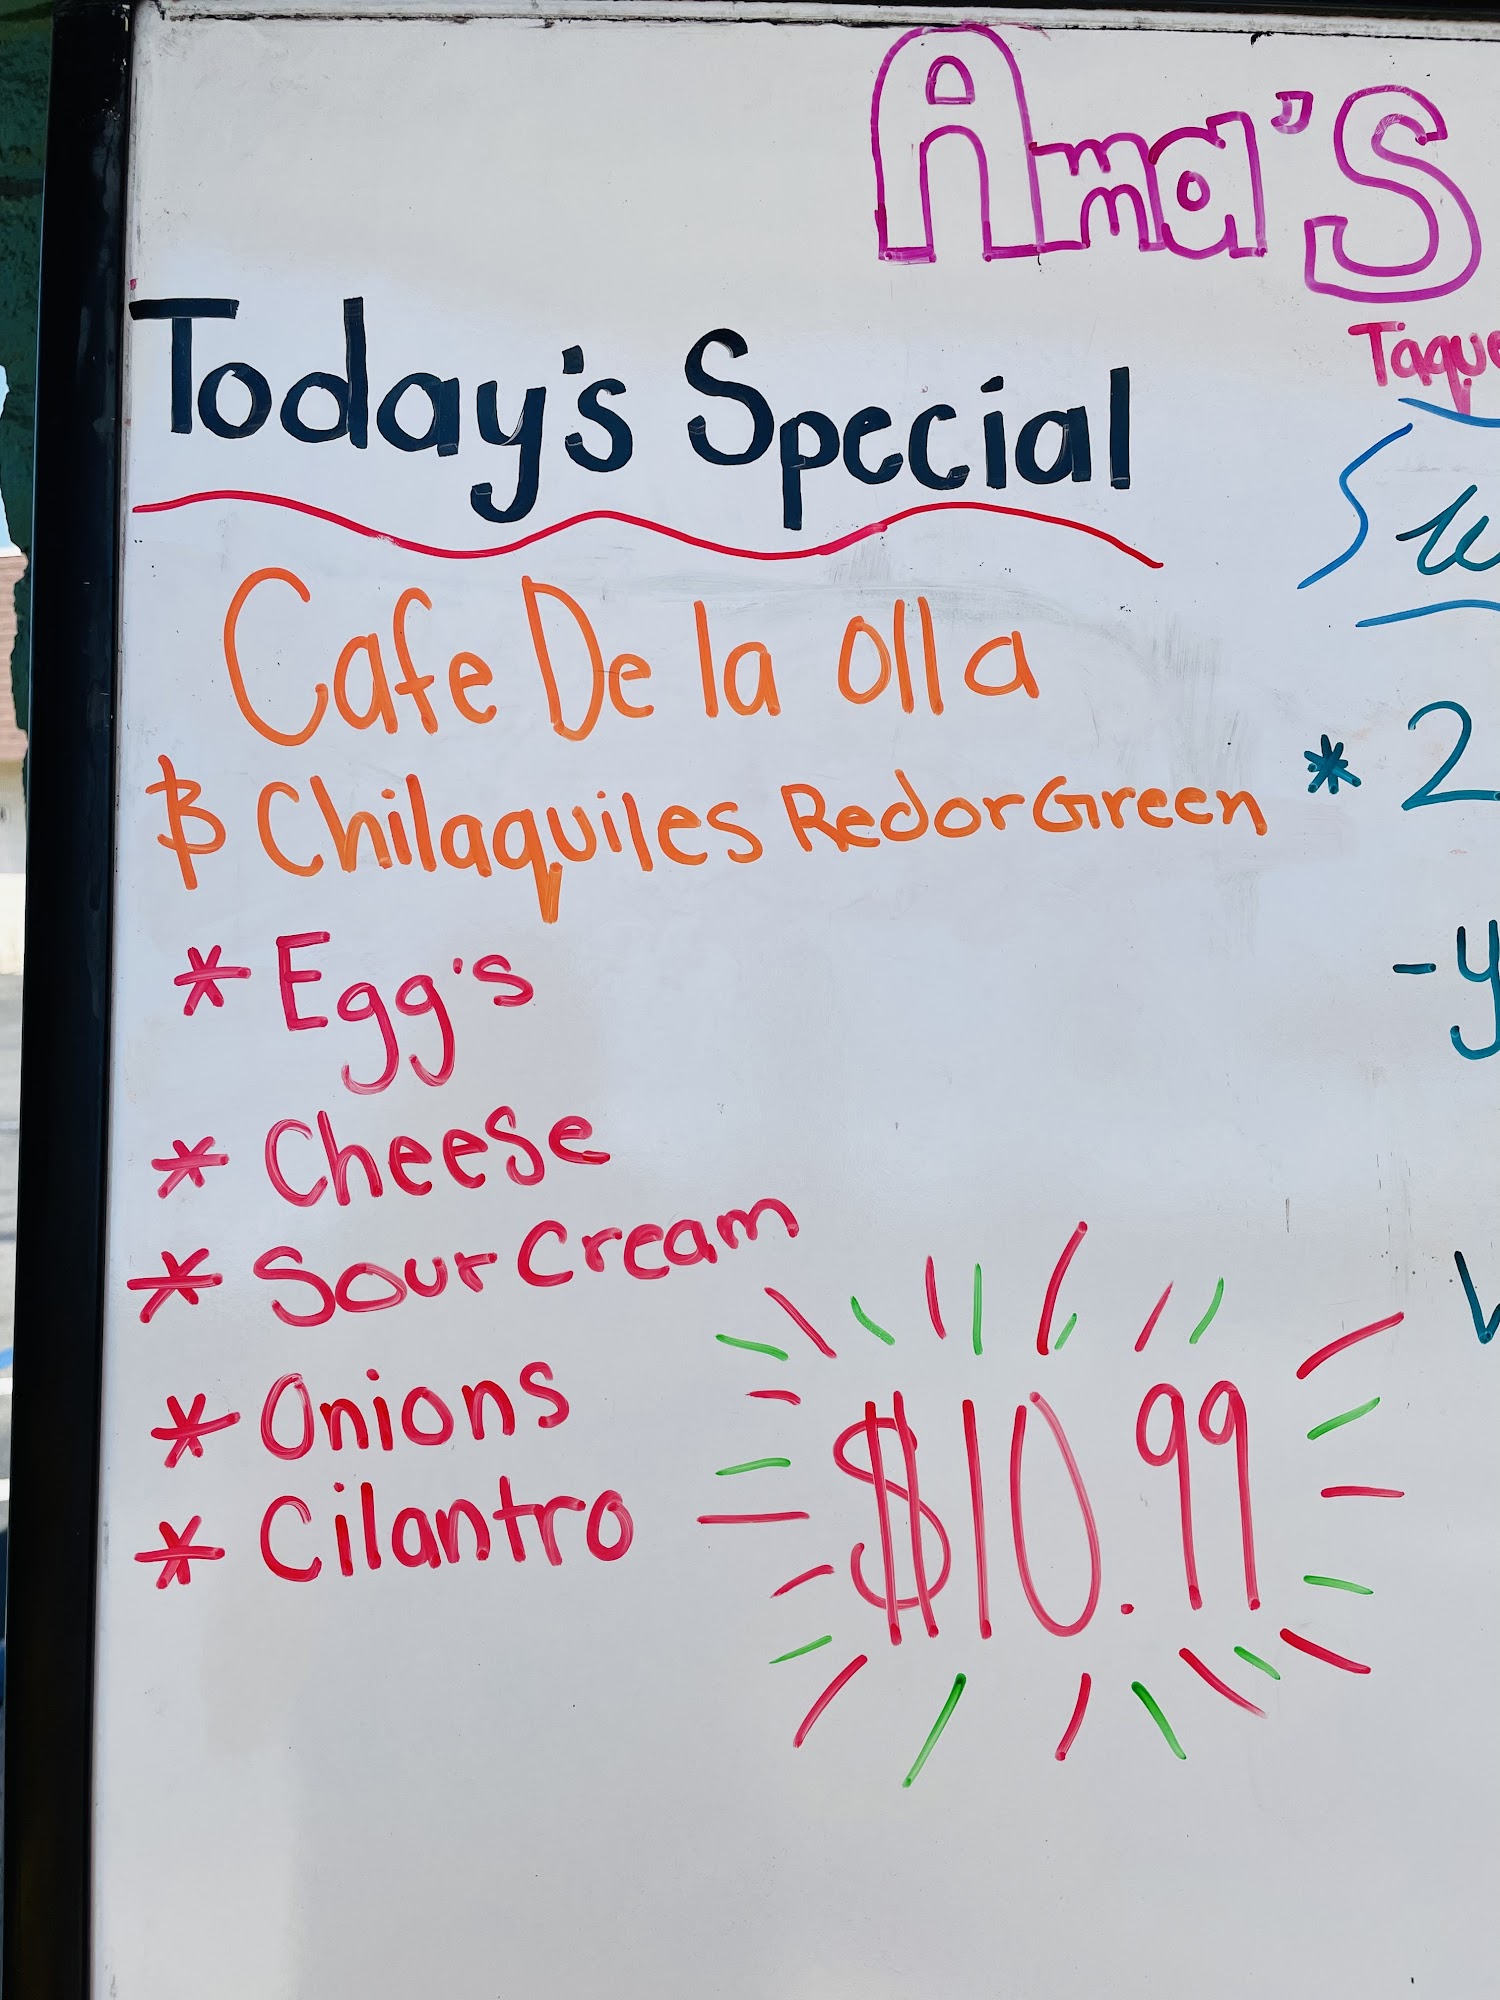 Ama's
Today's Special
Cafe De la olla
& Chilaquiles Red or Green
* Egg's
* Cheese
* Sour Cream
* Onions
* Cilantro
$10.99
* 2